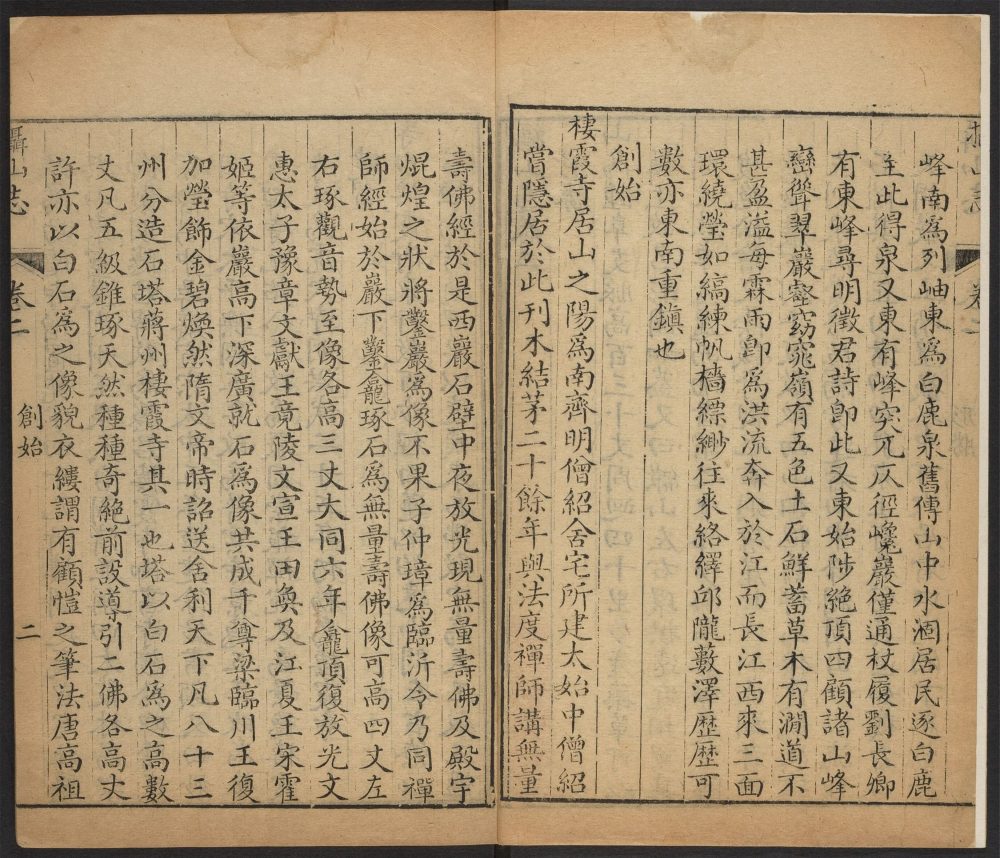 峰南爲列岫東爲白鹿泉舊傳山中水涸居民逐白鹿
至此得泉又東有峰突兀仄徑巉巖僅通杖履劉長卿
有東峰尋明徵君詩卽此又東始陟絕頂四顧諸山峰
巒聳翠巖壑窈窕嶺有五色土石鮮蓄草木有澗道不
甚盈溢每霖雨卽爲洪流奔入於江而長江西來三面
環繞瑩如縞練帆檣縹緲往來絡繹邱隴藪澤歷歷可
數亦東南重鎮也
創始
棲霞寺居山之陽爲南齊明僧紹舍宅所建太始中僧紹
嘗隱居於此刊木結茅二十餘年與法度禪師講無量
壽佛經於是西巖石壁中夜放光現無量壽佛及殿宇
焜煌之狀將鑿巖爲像不果子仲璋爲臨沂令乃同禪
師經始於巖下鑿龕琢石爲無量壽佛像可高四丈左
右琢觀音勢至像各高三丈大同六年龕頂復放光文
惠太子豫章文獻王竟陵文宣王田奐及江夏王宋霍
姬等依巖高下深廣就石爲像共成千尊梁臨川王復
加瑩飾金碧煥然隋文帝時詔送舍利天下凡八十三
州分造石塔蔣州棲霞寺其一也塔以白石爲之高數
丈凡五級錐琢天然種種奇絕前設導引二佛各高丈
許亦以白石爲之像貌衣縷謂有顧愷之筆法唐高祖
攝山志
卷二
創始
二